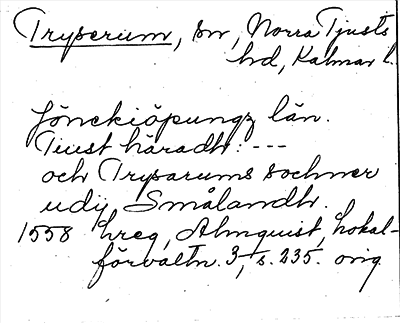 Tryserum, sn, Norra Tjusts
hd, Kalmar l.
Jönekiöpungz län.
Tiust häradh: ---
och Trysarums sochner
udij Smålandh.
1558 hreg, Almquist, Lokal-
förvaltn. 3, s. 235. orig.